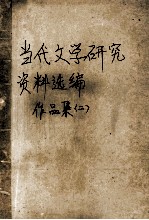 当代文学研究
资料选编
作品集(二)